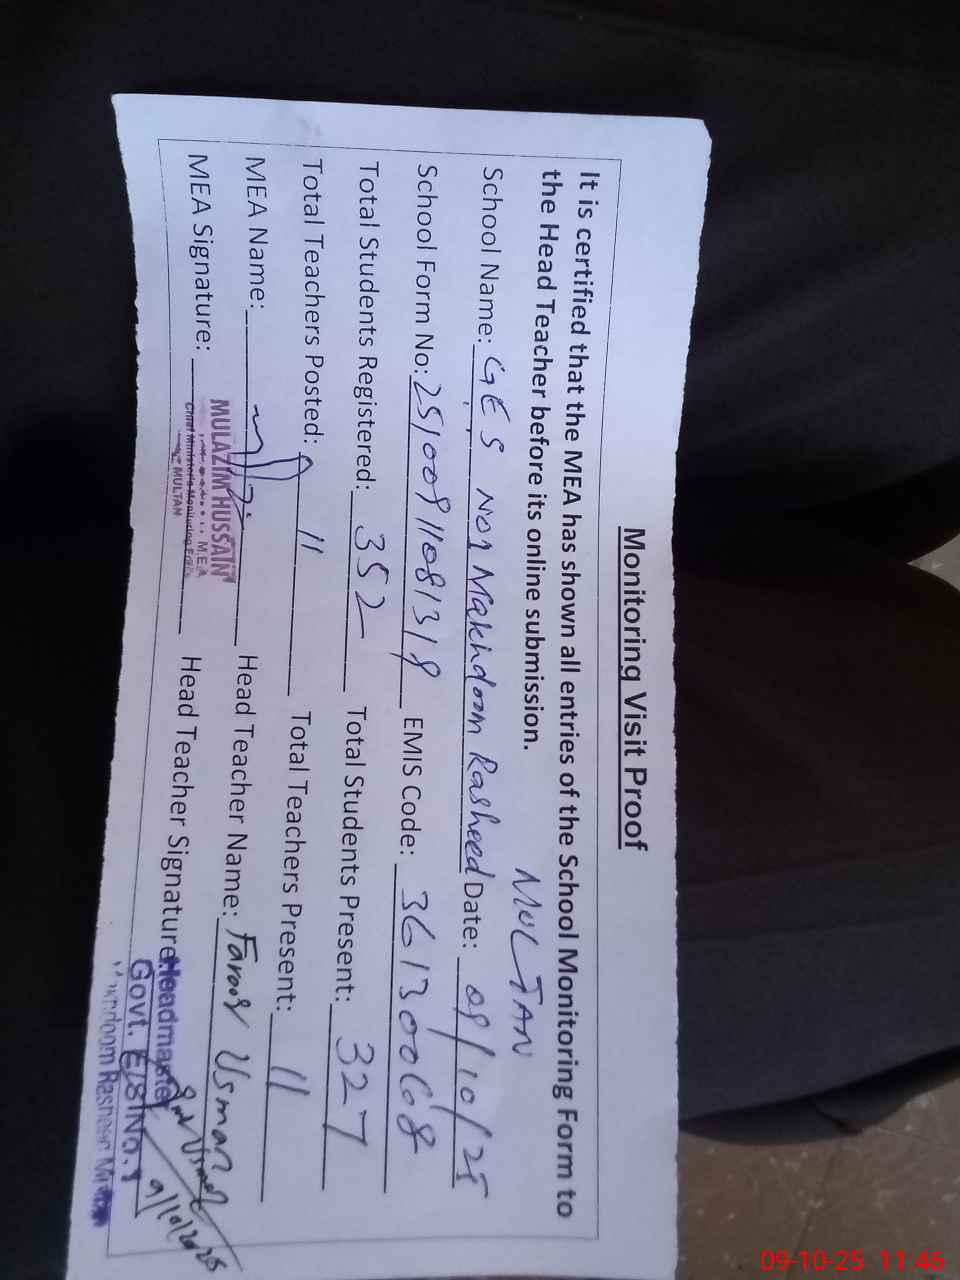 Monitoring Visit Proof
It is certified that the MEA has shown all entries of the School Monitoring Form to
the Head Teacher before its online submission.
MULTAN
School Name: GES No1 Makhdoom Rasheed Date: 09/10/25
School Form No: EMIS Code: 36130068
Total Students Registered: 352 Total Students Present: 327
Total Teachers Posted: 11 Total Teachers Present: 11
MEA Name: Head Teacher Name: Farooq Usman
MEA Signature: Head Teacher Signature:
MULAZIM HUSSAIN
M.E.A
Chief Minister's Monitoring Force
MULTAN
Headmaster
Govt. E/S No. 1
Makhdoom Rasheed
9/10/2025
09-10-25 11:46